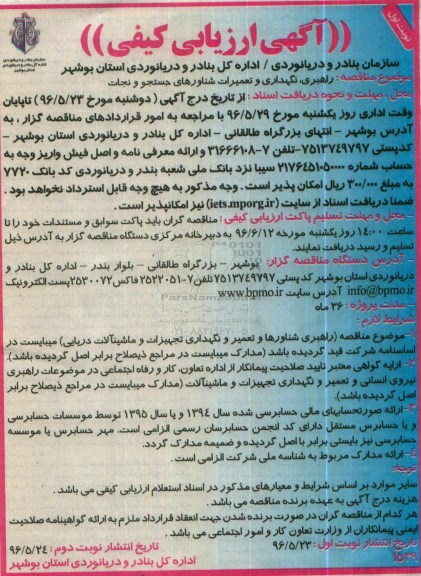 نوبت اول
((آگهی ارزیابی کیفی))
سازمان بنادر و دریانوردی
اداره کل بنادر و دریانوردی استان بوشهر
سازمان بنادر و دریانوردی / اداره کل بنادر و دریانوردی استان بوشهر
موضوع مناقصه : راهبری، نگهداری و تعمیرات شناورهای جستجو و نجات
محل ، مهلت و نحوه دریافت اسناد : از تاریخ درج آگهی ( دوشنبه مورخ ۹۶/۵/۲۳ ) تاپایان
وقت اداری روز یکشنبه مورخ ۹۶/۵/۲۹ با مراجعه به امور قراردادهای مناقصه گزار ، به
آدرس بوشهر - انتهای بزرگراه طالقانی - اداره کل بنادر و دریانوردی استان بوشهر -
کدپستی ۷۵۱۳۷۴۹۷۹۷-تلفن ۷-۳۱۶۶۶۱۰۸ و ارائه معرفی نامه و اصل فیش واریز وجه به
حساب شماره ۲۱۷۶۴۵۱۰۵۰۰۰۰ سیبا نزد بانک ملی شعبه بندر و دریانوردی کد بانک ۷۷۲۰
به مبلغ ۳۰۰/۰۰۰ ریال امکان پذیر است . وجه مذکور به هیچ وجه قابل استرداد نخواهد بود .
ضمنا دریافت اسناد از سایت (iets.mporg.ir) نیز امکانپذیر است .
- محل و مهلت تسلیم پاکت ارزیابی کیفی : مناقصه گران باید پاکت سوابق و مستندات خود را تا
ساعت ۱۴:۰۰ روز یکشنبه مورخه ۹۶/۶/۱۲ به دبیرخانه مرکزی دستگاه مناقصه گزار به آدرس ذیل
تسلیم و رسید دریافت نمایند.
- آدرس دستگاه مناقصه گزار: بوشهر - بزرگراه طالقانی - بلوار بندر - اداره کل بنادر و
دریانوردی استان بوشهر کدپستی ۷۵۱۳۷۴۹۷۹۷ تلفن ۷-۲۵۲۲۰۵۱ فاکس ۲۵۳۰۰۷۲ پست الکترونیک
info@bpmo.ir آدرس سایت www.bpmo.ir
- مدت پروژه : ۳۶ ماه
شرایط لازم:
۱-موضوع مناقصه (راهبری شناورها و تعمیر و نگهداری تجهیزات و ماشینآلات دریایی) میبایست در
اساسنامه شرکت قید گردیده باشد (مدارک میبایست در مراجع ذیصلاح برابر اصل گردیده باشد).
۲-ارایه گواهی معتبر تایید صلاحیت پیمانکار از اداره تعاون، کار و رفاه اجتماعی در موضوعات راهبری
نیروی انسانی و تعمیر و نگهداری تجهیزات و ماشینآلات (مدارک میبایست در مراجع ذیصلاح برابر
اصل گردیده باشد).
۳-ارائه صورتحسابهای مالی حسابرسی شده سال ۱۳۹۴ و یا سال ۱۳۹۵ توسط موسسات حسابرسی
و یا حسابرس مستقل دارای کد انجمن حسابرسان رسمی الزامی است. مهر حسابرس یا موسسه
حسابرسی نیز بایستی برابر با اصل گردیده و ضمیمه مدارک گردد.
۴-ارائه مدارک مربوط به شناسه ملی شرکت الزامی است .
توجه:
سایر موارد بر اساس شرایط و معیارهای مذکور در اسناد استعلام ارزیابی کیفی می باشد .
هزینه درج آگهی به عهده برنده مناقصه می باشد .
هر کدام از مناقصه گران در صورت برنده شدن جهت انعقاد قرارداد ملزم به ارائه گواهینامه صلاحیت
ایمنی پیمانکاران از وزارت تعاون کار و امور اجتماعی می باشد .
تاریخ انتشار نوبت اول : ۹۶/۵/۲۳ تاریخ انتشار نوبت دوم : ۹۶/۵/۲۴
۱۵۳۹ اداره کل بنادر و دریانوردی استان بوشهر